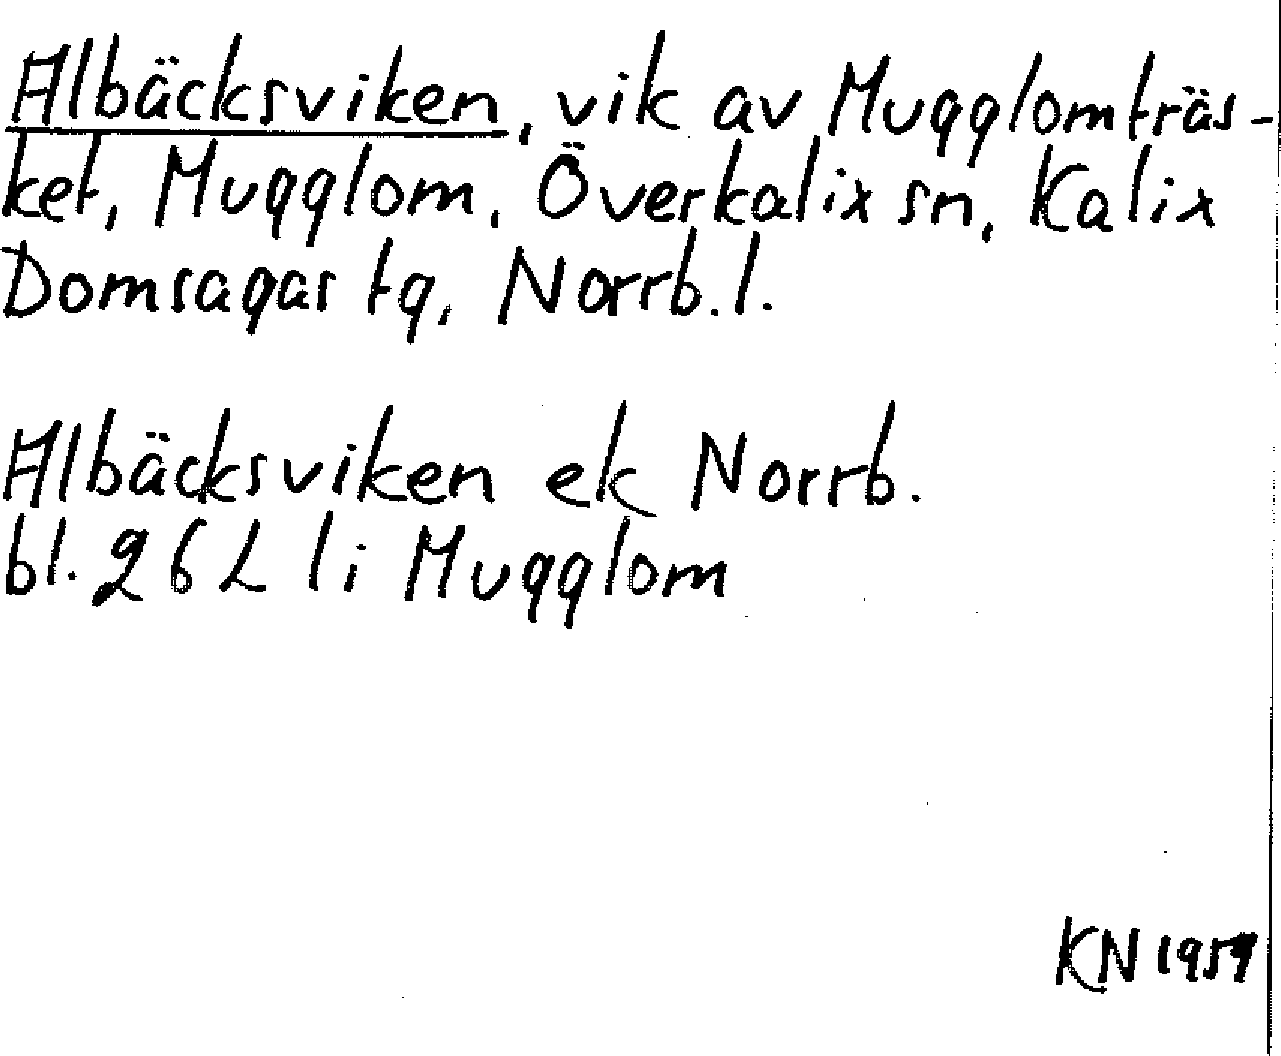 Albäcksviken, vik av Mugglomträs-
ket, Mugglom, Överkalix sn, Kalix
Domsagas tg, Norrb. l.
Albäcksviken ek Norrb.
bl. 262 li Mugglom
KN